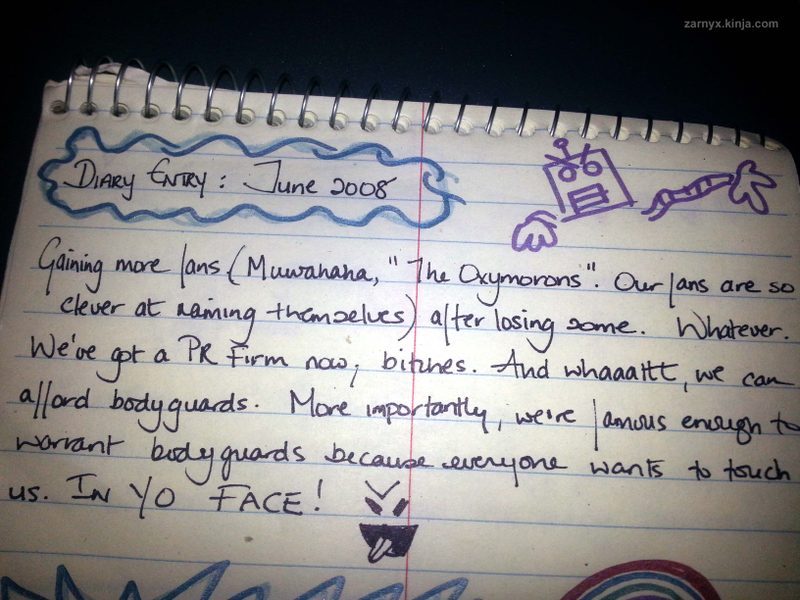 zarnyx.kinja.com
DIARY ENTRY : June 2008
Gaining more fans (Muwahaha, "The Oxymorons". Our fans are so
clever at naming themselves) after losing some. Whatever.
We've got a PR Firm now, bitches. And whaaattt, we can
afford bodyguards. More importantly, we're famous enough to
warrant bodyguards because everyone wants to touch
us. IN YO FACE!